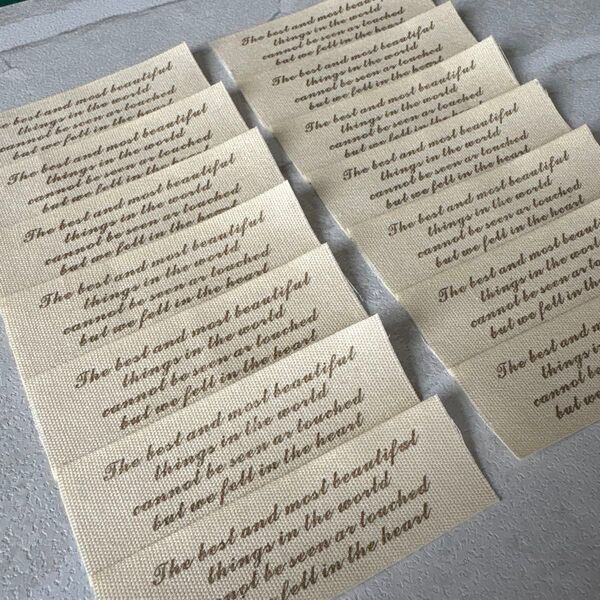 best and most beautiful
things in the world
cannot be seen ar touched
but we fell in the heart
The best and most beautiful
things in the world
cannot be seen ar touched
but we fell in the heart
The best and most beautiful
things in the world
cannot be seen ar touched
but we fell in the heart
The best and most beautiful
things in the world
cannot be seen ar touched
but we fell in the heart
The best and most beautiful
things in the world
cannot be seen ar touched
but we fell in the heart
The best and most beautiful
things in the world
cannot be seen ar touched
but we fell in the heart
The best and most beautiful
things in the world
cannot be seen ar touched
but we fell in the heart
The best and most beautiful
things in the world
cannot be seen ar touched
but we fell in the heart
The best and most beautiful
things in the world
cannot be seen ar touched
but we fell in the heart
The best and most beautiful
things in the world
cannot be seen ar touched
but we fell in the heart
The best and most beautiful
things in the world
cannot be seen ar touched
but we fell in the heart
The best and most beautiful
things in the world
cannot be seen ar touched
but we fell in the heart
The best and most
things in the world
cannot be seen ar
but we fell in the
The best and
things in
cannot be
but we